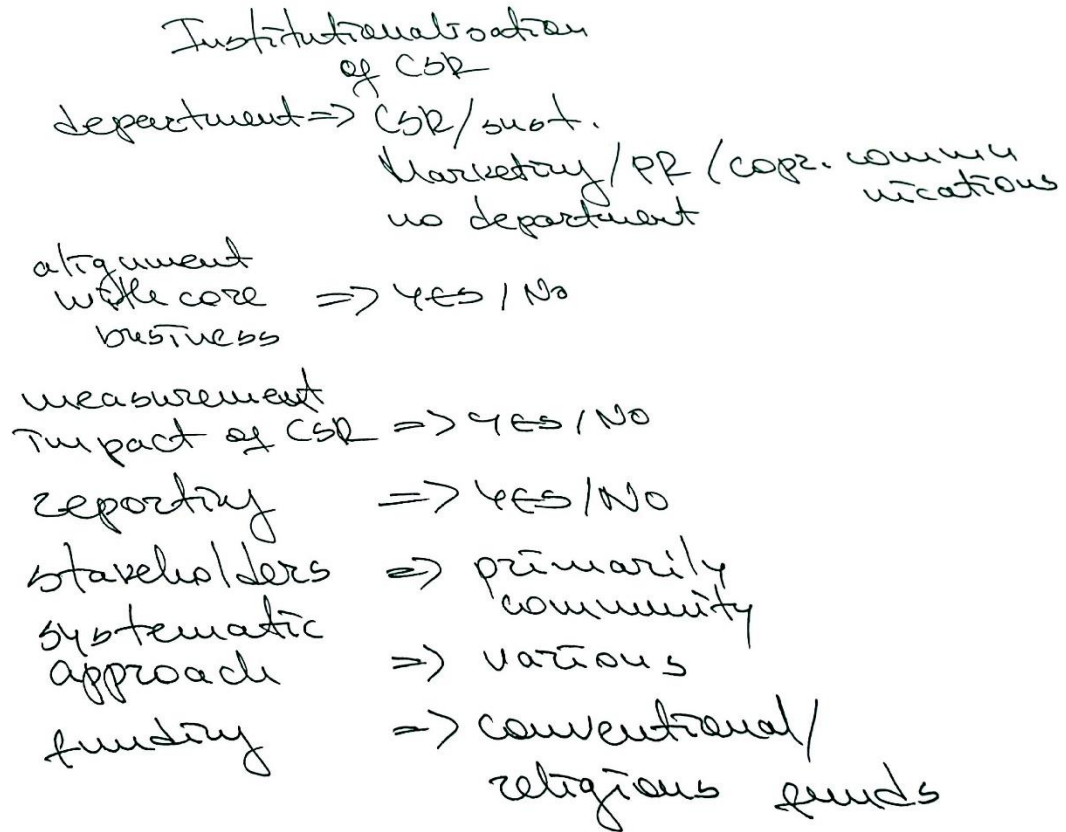 Institutionalisation
of CSR
department => CSR/sust.
Marketing/PR/copr. commu
nications
no department
alignment
with core => YES / No
business
measurement
impact of CSR => YES / NO
reporting => YES/NO
stakeholders => primarily
community
systematic
approach => various
funding => conventional/
religious funds